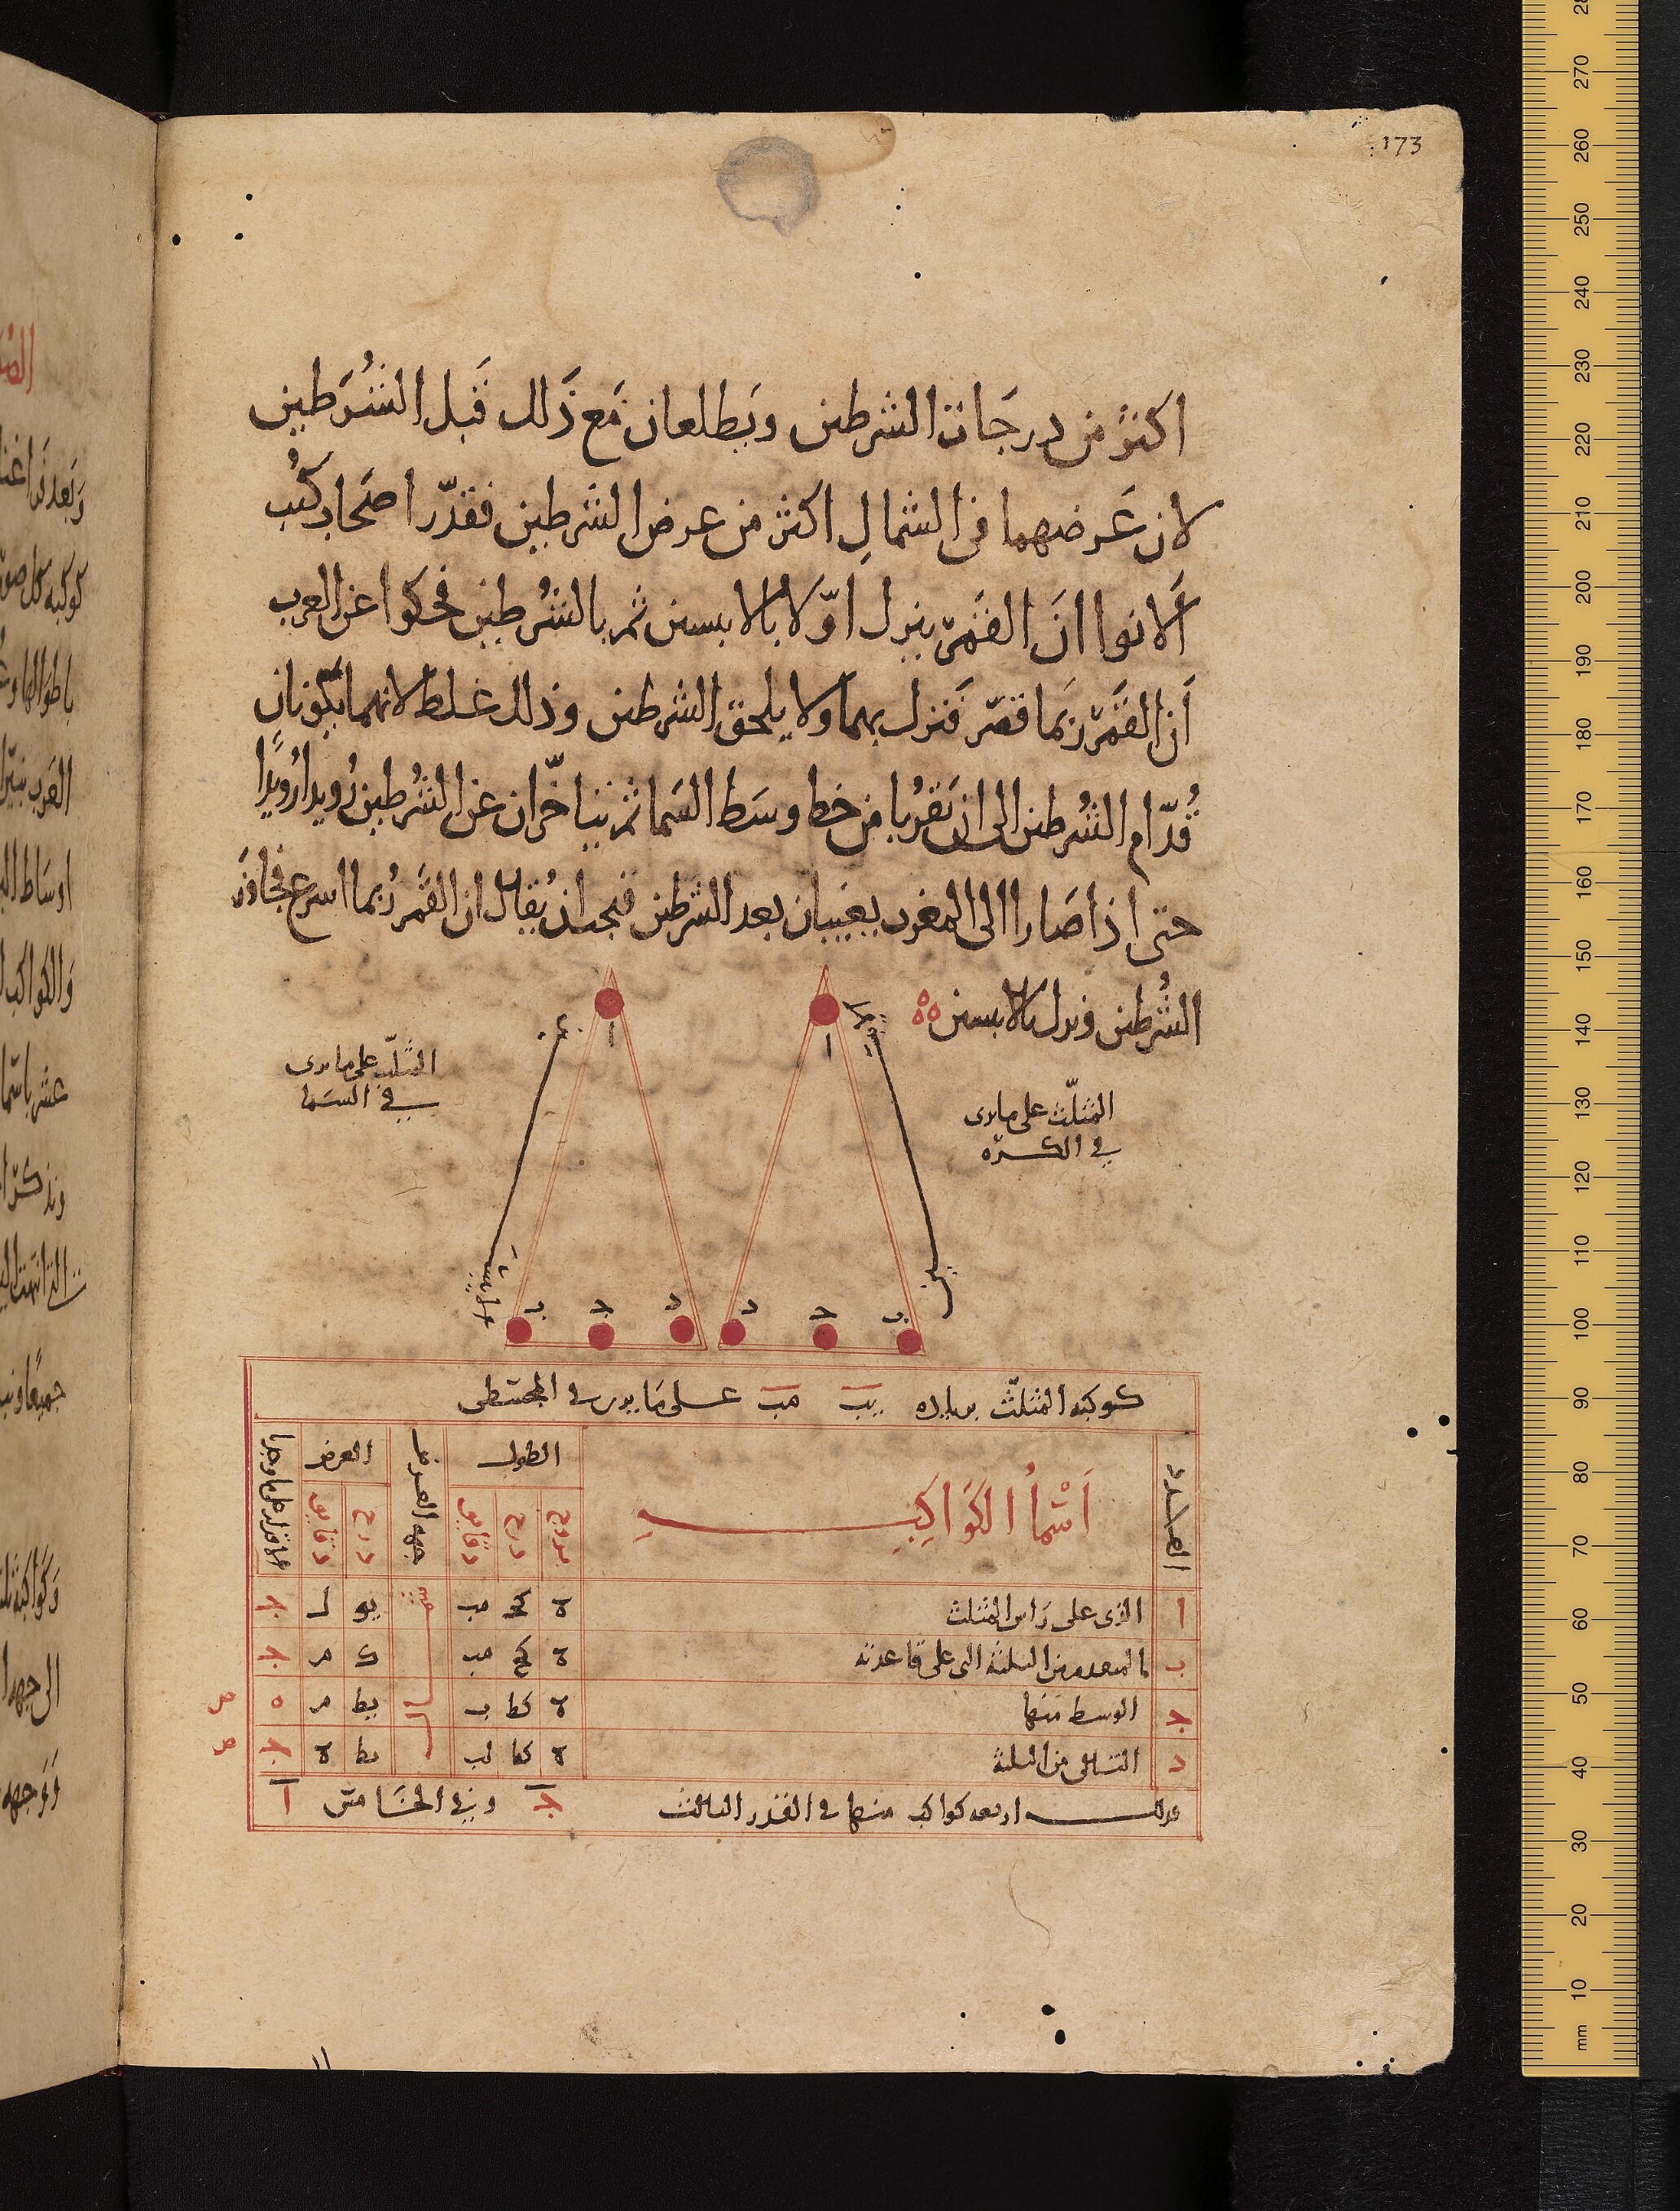 173
اكثر من درجات الشرطين ويطلعان مع ذلك قبل الشرطين
لان عرضهما في الشمال اكثر من عرض الشرطين فقدر اصحاب كتب
الانوا ان القمر ينزل اولا بالانيسين ثم بالشرطين فحكوا عن العرب
ان القمر ربما قصر فنزل بهما ولا يلحق الشرطين وذلك غلط لانهما يكونان
قدام الشرطين الى ان يقربا من خط وسط السما ثم يتاخران عن الشرطين رويدا رويدا
حتى اذا صارا الى المغرب يغيبان بعد الشرطين فيجب ان يقال ان القمر ربما اسرع فجاوز
الشرطين ونزل بالانيسين
المثلث على ما يرى
في الكرة
المثلث على ما يرى
في السما
ا
ا
ب
ج
د
د
ج
ب
كوكبة المثلث بزيادة يب مب على ما يوجد في المجسطي
العدد
اسما الكواكب
الطول
بروج
درج
دقايق
جهة العرض
العرض
درج
دقايق
ا الذي على راس المثلث ة كج مب يو ل ج
ب المتقدم من الثلثة التي على قاعدته ة كح مب ك م ج
ج الوسط منها ة كط ب يط م ه
د التالي من الثلثة ة كط لب يط ة ج
فذلك اربعة كواكب منها في القدر الثالث ج وفي الخامس ا
mm
10
20
30
40
50
60
70
80
90
100
110
120
130
140
150
160
170
180
190
200
210
220
230
240
250
260
270